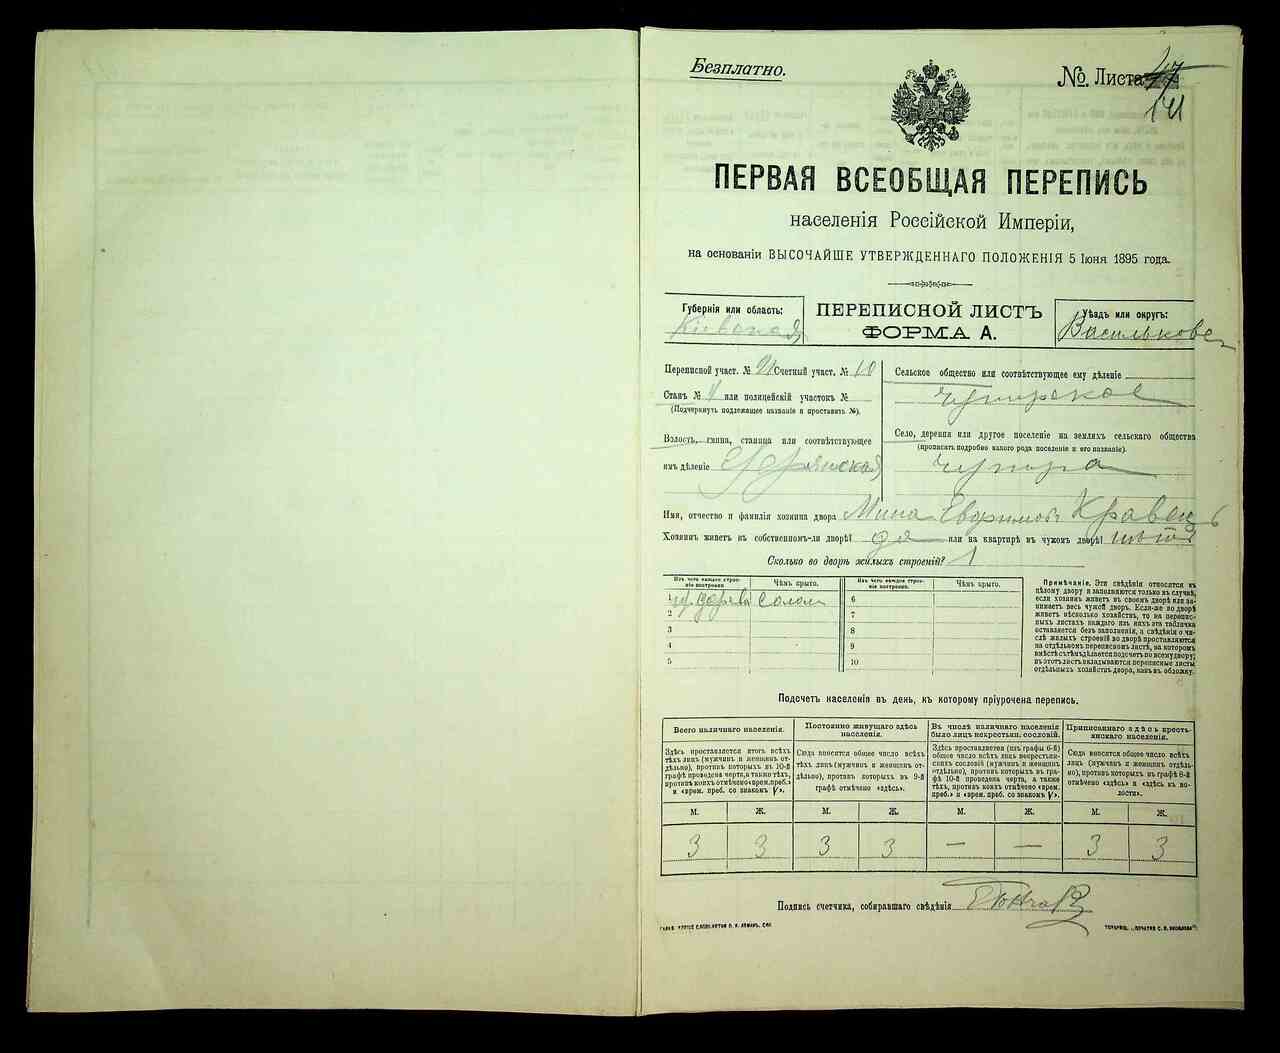 Безплатно.
№. Листа 47
141
ПЕРВАЯ ВСЕОБЩАЯ ПЕРЕПИСЬ
населенія Россійской Имперіи,
на основаніи ВЫСОЧАЙШЕ УТВЕРЖДЕННАГО ПОЛОЖЕНІЯ 5 Іюня 1895 года.
Губернія или область:
Кіевская
ПЕРЕПИСНОЙ ЛИСТЪ
ФОРМА А.
Уѣздъ или округъ:
Васильков
Переписной участ. № Счетный участ. № 10
Станъ № или полицейскій участокъ №
(Подчеркнуть подлежащее названіе и проставить №).
Волость, гмина, станица или соотвѣтствующее
имъ дѣленіе
Сельское общество или соотвѣтствующее ему дѣленіе
Село, деревня или другое поселеніе на земляхъ сельскаго общества
(прописать подробно какого рода поселеніе и его названіе).
Имя, отчество и фамилія хозяина двора Мина Кравець
Хозяинъ живетъ въ собственномъ-ли дворѣ? да или на квартирѣ въ чужомъ дворѣ?
Сколько во дворѣ жилыхъ строеній? 1
Изъ чего каждое строе-
ніе построено.
Чѣмъ крыто.
Изъ чего каждое строе-
ніе построено.
Чѣмъ крыто.
1 дерева солом
6
2
7
3
8
4
9
5
10
Примѣчаніе. Эти свѣдѣнія относятся къ
цѣлому двору и заполняются только въ случаѣ,
если хозяинъ живетъ въ своемъ дворѣ или за-
нимаетъ весь чужой дворъ. Если-же во дворѣ
живетъ нѣсколько хозяйствъ, то на перепис-
ныхъ листахъ каждаго изъ нихъ эта табличка
оставляется безъ заполненія, а свѣдѣнія о чи-
слѣ жилыхъ строеній во дворѣ проставляются
на отдѣльномъ переписномъ листѣ, на которомъ
вмѣстѣ съ тѣмъ дѣлается подсчетъ по всему двору;
въ этотъ листъ вкладываются переписные листы
отдѣльныхъ хозяйствъ двора, какъ въ обложку.
Подсчетъ населенія въ день, къ которому пріурочена перепись.
Всего наличнаго населенія.
Постоянно живущаго здѣсь
населенія.
Въ числѣ наличнаго населенія
было лицъ некрестьян. сословій.
Приписаннаго здѣсь кресть-
янскаго населенія.
Здѣсь проставляется итогъ всѣхъ
тѣхъ лицъ (мужчинъ и женщинъ от-
дѣльно), противъ которыхъ въ 10-й
графѣ проведена черта, а также тѣхъ,
противъ коихъ отмѣчено «врем. преб.»
и «врем. преб. со знакомъ V».
Сюда вносится общее число всѣхъ
тѣхъ лицъ (мужчинъ и женщинъ от-
дѣльно), противъ которыхъ въ 9-й
графѣ отмѣчено «здѣсь».
Здѣсь проставляется (изъ графы 6-й)
общее число всѣхъ лицъ некрестьян-
скихъ сословій (мужчинъ и женщинъ
отдѣльно), противъ которыхъ въ гра-
фѣ 10-й проведена черта, а также
тѣхъ, противъ коихъ отмѣчено «врем.
преб.» и «врем. преб. со знакомъ V».
Сюда вносится общее число всѣхъ
лицъ (мужчинъ и женщинъ отдѣль-
но), противъ которыхъ въ графѣ 8-й
отмѣчено «здѣсь» и «здѣсь къ во-
лости».
М. Ж. М. Ж. М. Ж. М. Ж.
3 3 3 3 — — 3 3
Подпись счетчика, собиравшаго свѣдѣнія